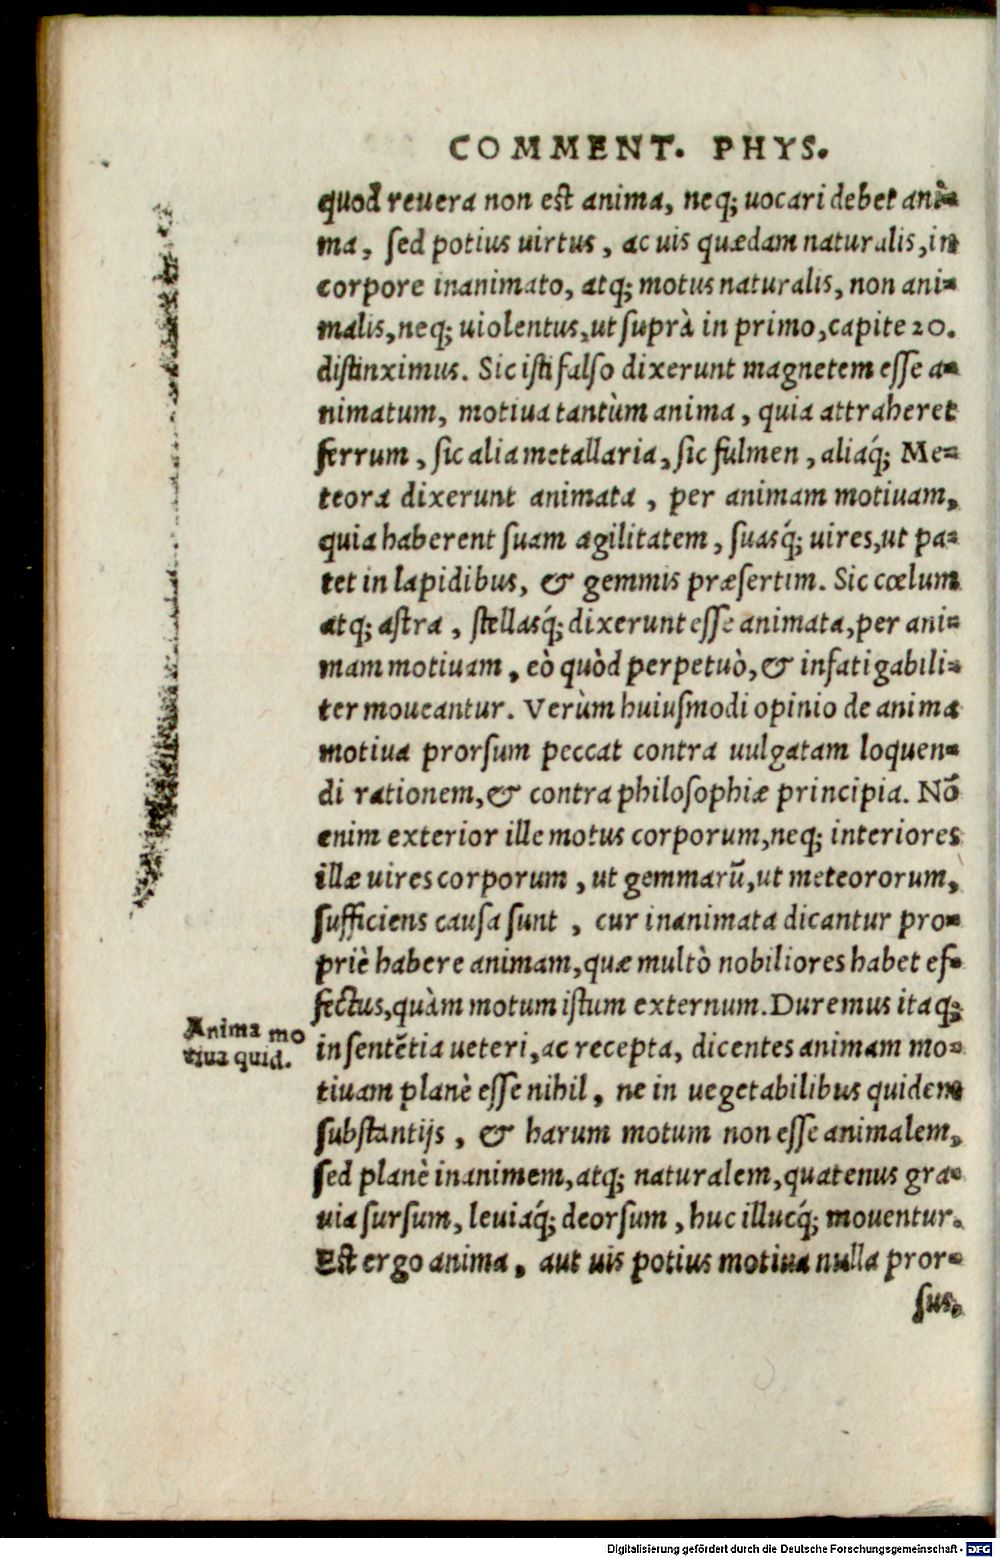 COMMENT. PHYS.
quod reuera non est anima, neq; uocari debet ani-
ma, sed potius uirtus, ac uis quædam naturalis, in
corpore inanimato, atq; motus naturalis, non ani-
malis, neq; uiolentus, ut suprà in primo, capite 20.
distinximus. Sic isti falso dixerunt magnetem esse a-
nimatum, motiua tantùm anima, quia attraheret
ferrum, sic alia metallaria, sic fulmen, aliaq́; Me-
teora dixerunt animata, per animam motiuam,
quia haberent suam agilitatem, suasq́; uires, ut pa-
tet in lapidibus, & gemmis præsertim. Sic cœlum
atq; astra, stellasq́; dixerunt esse animata, per ani-
mam motiuam, eò quòd perpetuò, & infatigabili-
ter moueantur. Verùm huiusmodi opinio de anima
motiua prorsum peccat contra uulgatam loquen-
di rationem, & contra philosophiæ principia. Nō
enim exterior ille motus corporum, neq; interiores
illæ uires corporum, ut gemmarū, ut meteororum,
sufficiens causa sunt, cur inanimata dicantur pro-
priè habere animam, quæ multò nobiliores habet ef-
fectus, quàm motum istum externum. Duremus itaq;
in sentētia ueteri, ac recepta, dicentes animam mo-
tiuam planè esse nihil, ne in uegetabilibus quidem
substantijs, & harum motum non esse animalem,
sed planè inanimem, atq; naturalem, quatenus gra-
uia sursum, leuiaq́; deorsum, huc illucq́; mouentur.
Est ergo anima, aut uis potius motiua nulla pror-
sus,
Anima mo
tiua quid.
Digitalisierung gefördert durch die Deutsche Forschungsgemeinschaft - DFG